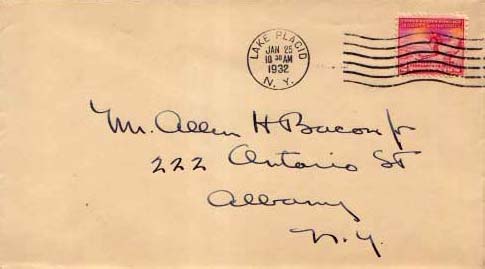 LAKE PLACID
JAN 25
10 30 AM
1932
N.Y.
Mr. Allen H Bacon Jr
222 Ontario St
Albany
N.Y.